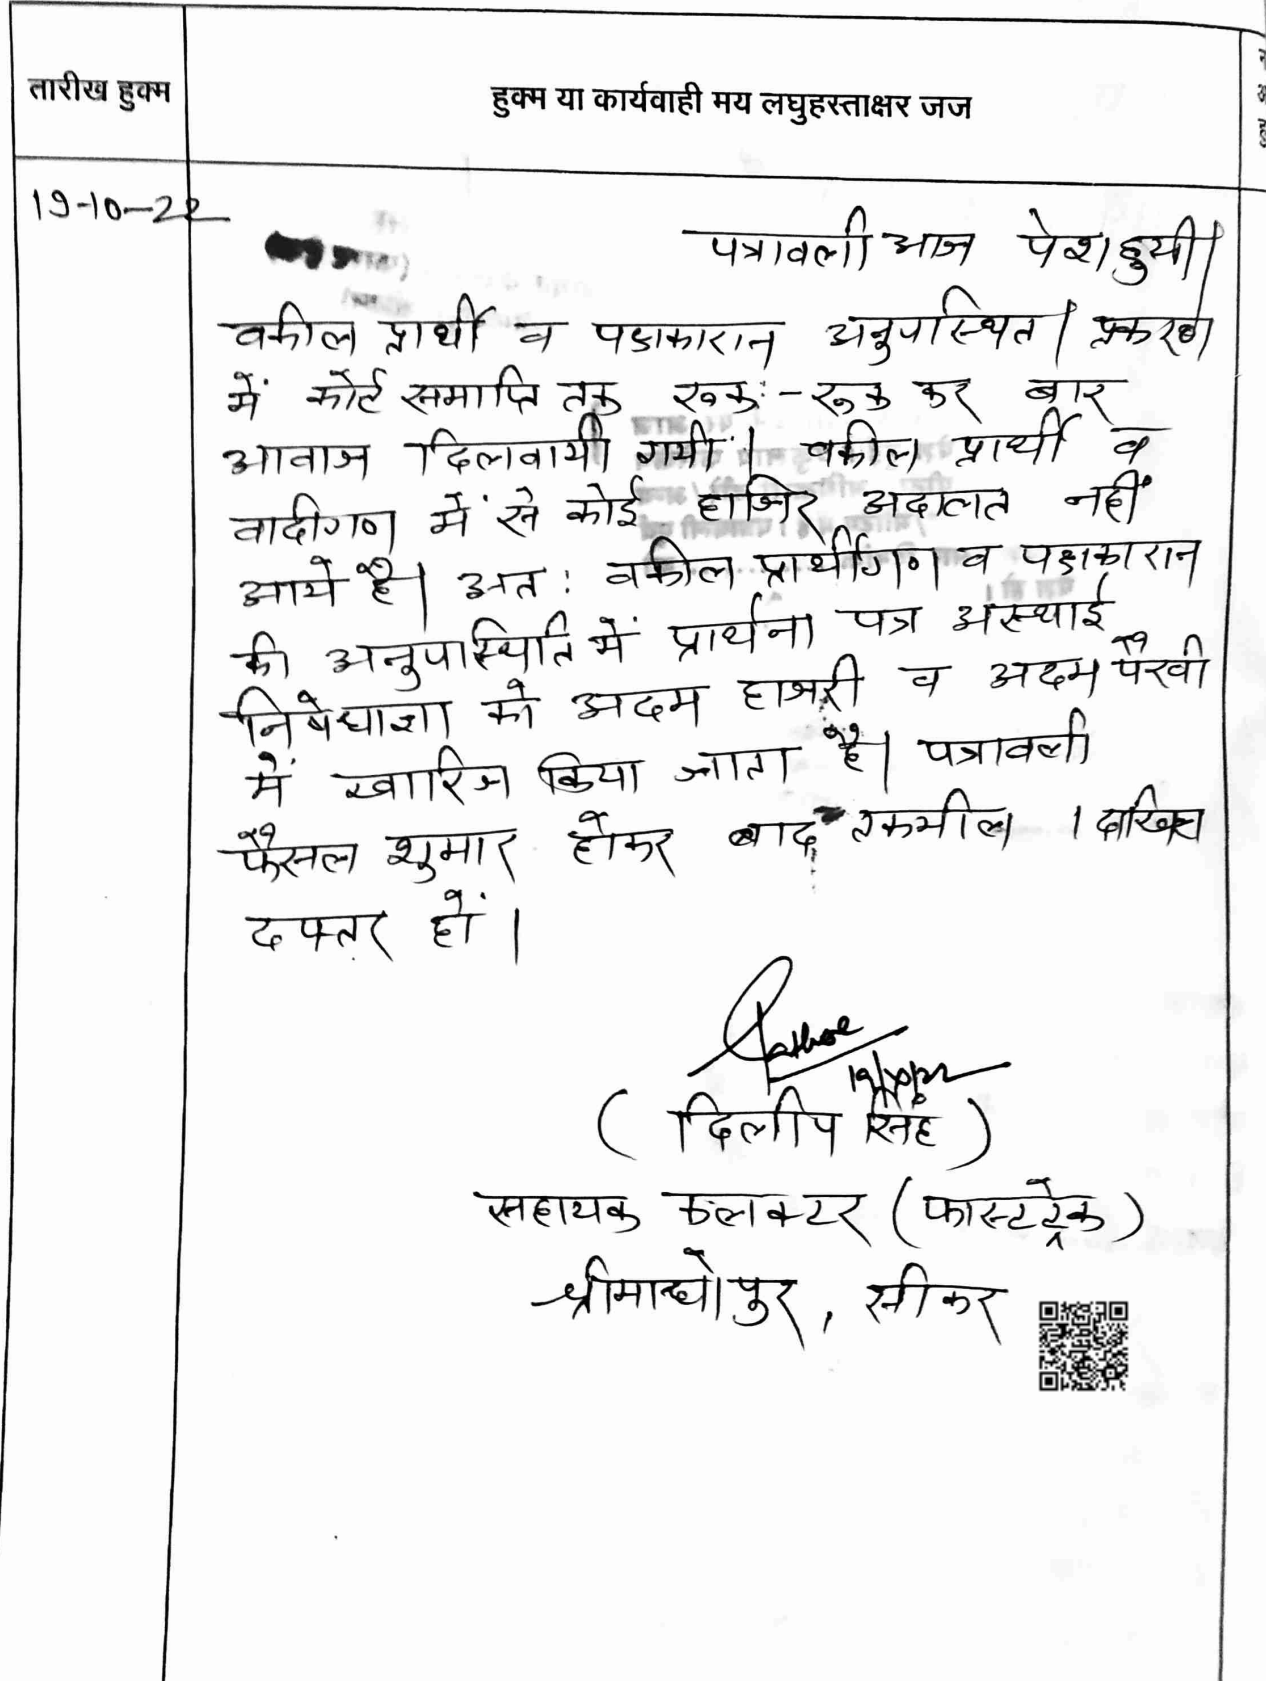 तारीख हुक्म
हुक्म या कार्यवाही मय लघुहस्ताक्षर जज
19-10-22
पत्रावली आज पेश हुयी।
वकील प्रार्थी व पक्षकारान अनुपस्थित। प्रकरण
में कोर्ट समाप्ति तक रूक:-रूक कर बार
आवाज दिलवायी गयी। वकील प्रार्थी व
वादीगण में से कोई हाजिर अदालत नहीं
आये है। अत: वकील प्रार्थीगण व पक्षकारान
की अनुपस्थिति में प्रार्थना पत्र अस्थाई
निषेधाज्ञा को अदम हाजरी व अदम पैरवी
में खारिज किया जाता है। पत्रावली
फैसल शुमार होकर बाद तकमील । दाखिल
दफ्तर हों।
19/10/22
(दिलीप सिंह)
सहायक कलक्टर (फास्टट्रेक)
श्रीमाधोपुर, सीकर